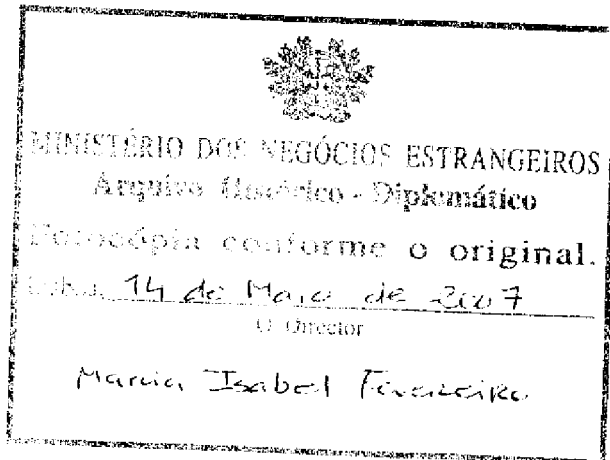 MINISTÉRIO DOS NEGÓCIOS ESTRANGEIROS
Arquivo Histórico - Diplomático
Fotocópia conforme o original.
14 de Maio de 2007
O Director
Isabel